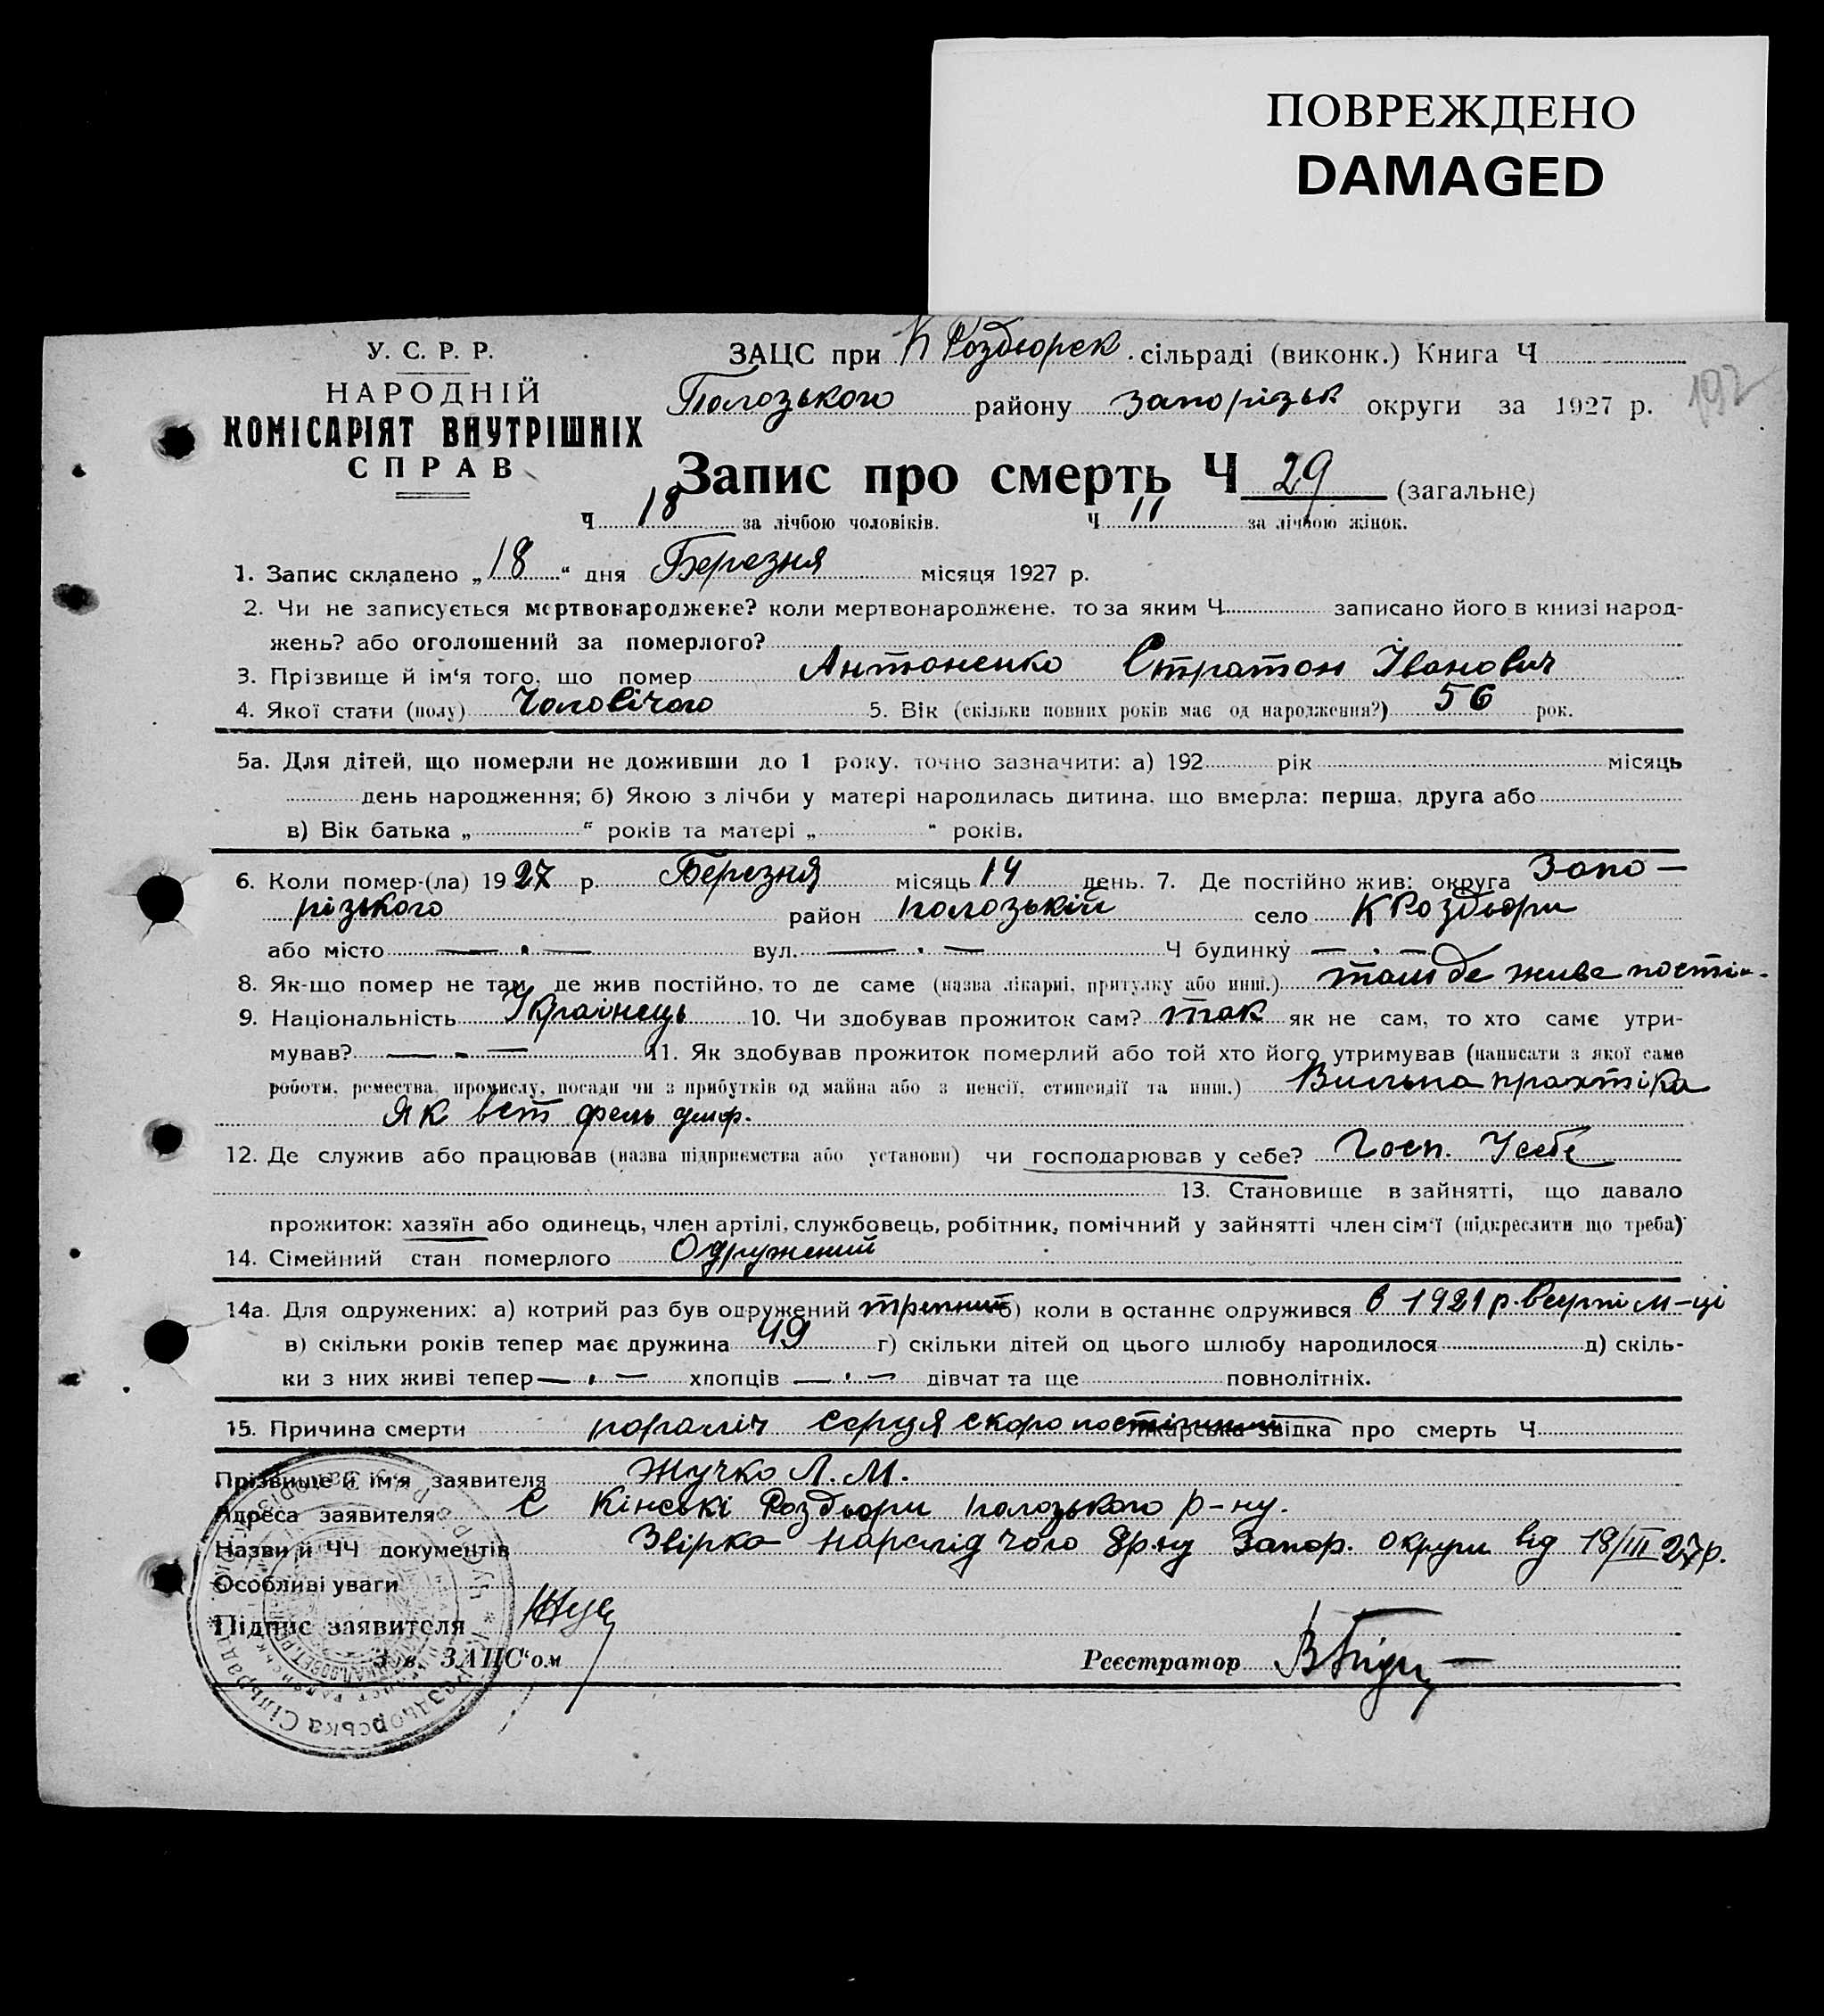 ПОВРЕЖДЕНО
DAMAGED
У. С. Р. Р.
НАРОДНІЙ
КОМІСАРІЯТ ВНУТРІШНІХ
СПРАВ
ЗАЦС при К Роздьорск. сільраді (виконк.) Книга Ч
Пологзького району Запорізьк округи за 1927 р.
192
Запис про смерть Ч 29 (загальне)
Ч 18 за лічбою чоловіків. Ч 11 за лічбою жінок.
1. Запис складено „18“ дня Березня місяця 1927 р.
2. Чи не записується мертвонароджене? коли мертвонароджене, то за яким Ч записано його в книзі народ-
жень? або оголошений за померлого?
3. Прізвище й ім‘я того, що помер Антоненко Стратон Іванович
4. Якої стати (полу) Чоловічого 5. Вік (скільки повних років має од народження?) 56 рок.
5а. Для дітей, що померли не доживши до 1 року, точно зазначити: а) 192 рік місяць
день народження; б) Якою з лічби у матері народилась дитина, що вмерла: перша, друга або
в) Вік батька „ “ років та матері „ “ років.
6. Коли помер-(ла) 1927 р. Березня місяць 14 день. 7. Де постійно жив: округа Запо-
різького район пологзькій село К Роздьори
або місто — . — вул. — . — Ч будинку — . —
8. Як-що помер не там, де жив постійно, то де саме (назва лікарні, притулку або инш.) там де живе пості-.
9. Національність Українець 10. Чи здобував прожиток сам? так як не сам, то хто саме утри-
мував? — . — 11. Як здобував прожиток померлий або той хто його утримував (написати з якої саме
роботи, ремества, промислу, посади чи з прибутків од майна або з пенсії, стипендії та инш.) Вильна практіка
Як вет фельдшер.
12. Де служив або працював (назва підприємства або установи) чи господарював у себе? Госп. У себе
13. Становище в зайнятті, що давало
прожиток: хазяїн або одинець, член артілі, службовець, робітник, помічний у зайнятті член сім‘ї (підкреслити що треба)
14. Сімейний стан померлого Одружений
14а. Для одружених: а) котрий раз був одружений б) коли в останнє одружився в 1921 р. м-ці
в) скільки років тепер має дружина 49 г) скільки дітей од цього шлюбу народилося д) скіль-
ки з них живі тепер — . — хлопців — . — дівчат та ще повнолітніх.
15. Причина смерти пораліч серця скоропостіжний лікарська звідка про смерть Ч
Прізвище й ім‘я заявителя Жучко Л. М.
Адреса заявителя С Кінські Роздьори пологзького р-ну.
Назви й ЧЧ документів Звірка Запор. округи від 18/III 27 р.
Особливі уваги
Підпис заявителя
Зав. ЗАЦС‘ом Реєстратор
Роздьорська Сільрада